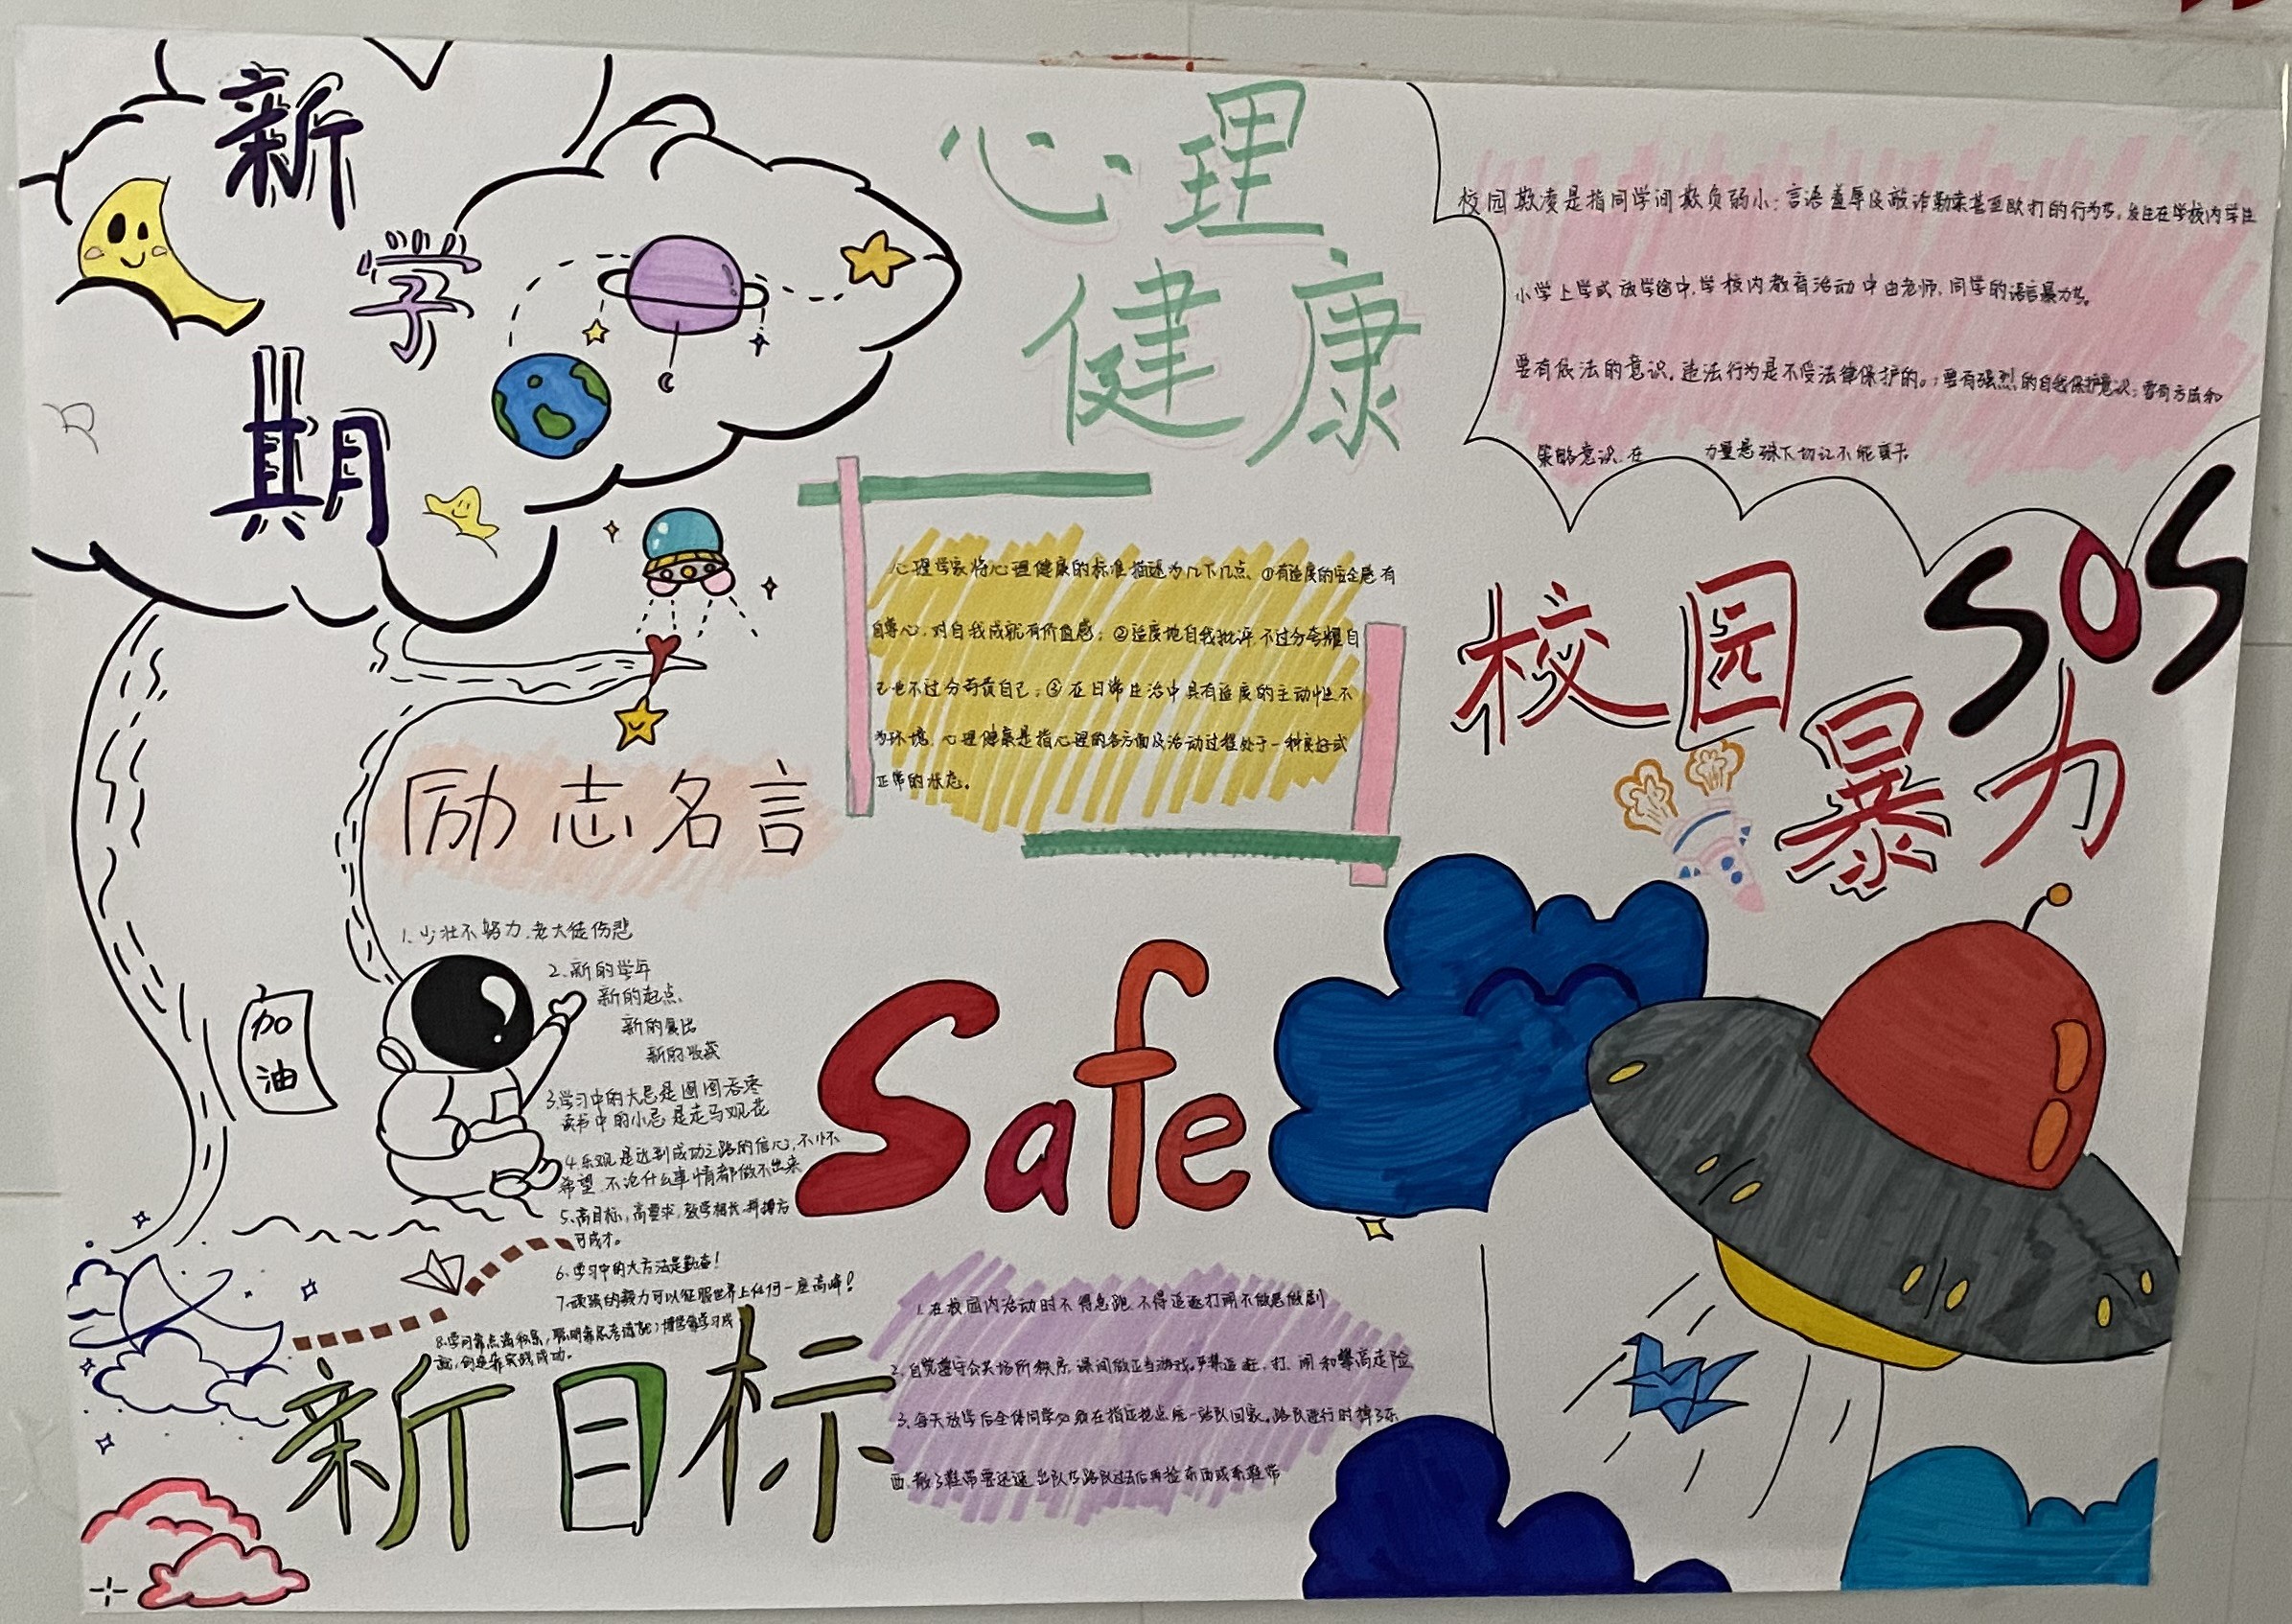 新
学
期
心理
健康
校园欺凌是指同学间欺负弱小；言语羞辱及敲诈勒索甚至欧打的行为等。发生在学校内学生
小学上学或放学途中，学校内教育活动中由老师，同学的语言暴力等。
要有依法的意识，违法行为是不受法律保护的。；要有强烈的自我保护意识；要有方法和
策略意识，在 力量悬殊下切记不能蛮干
心理学家将心理健康的标准描述为几下几点、①有适度的安全感有
自尊心，对自我成就有价值感；②适度地自我批评，不过分夸耀自
己也不过分苛责自己；③在日常生活中具有适度的主动性不
为环境，心理健康是指心理的各方面及活动过程处于一种良好或
正常的状态。
SOS
校园
暴力
励志名言
1、少壮不努力，老大徒伤悲
2、新的学年
新的起点、
新的
新的收获
3、学习中的大忌是囫囵吞枣
读书中的小忌是走马观花
4、乐观是达到成功之路的信心，不怀
希望，不论什么事情都做不出来
5、高目标，高要求，教学相长，拼搏方
可成才。
6、学习中的大方法是勤奋！
7、顽强的毅力可以征服世界上任何一座高峰！
8、学习靠点滴积累，聪明靠思考
创造靠实践成功。
加
油
Safe
新目标
1、在校园内活动时不得急跑，不得追逐打闹不做恶做剧
2、自觉遵守公共场所秩序，课间做正当游戏。严禁追逐、打、闹和攀高走险
3、每天放学后全体同学必须在指定地点统一站队回家。路队进行时掉了东
西，散了鞋带要迅速出队等路队过去后再捡东西或系鞋带